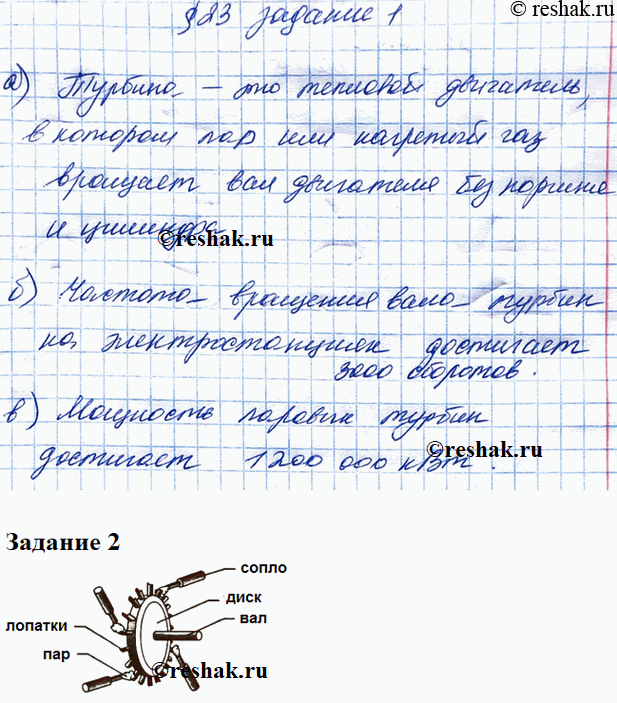 ©reshak.ru
§23 задание 1
а) Турбина – это тепловой двигатель,
в котором пар или нагретый газ
вращает вал двигателя без поршня
и цилиндра
©reshak.ru
б) Частота вращения вала турбин
на электростанциях достигает
3000 оборотов.
в) Мощность паровых турбин
©reshak.ru
достигает 1200 000 кВт.
Задание 2
сопло
диск
вал
лопатки
пар
©reshak.ru